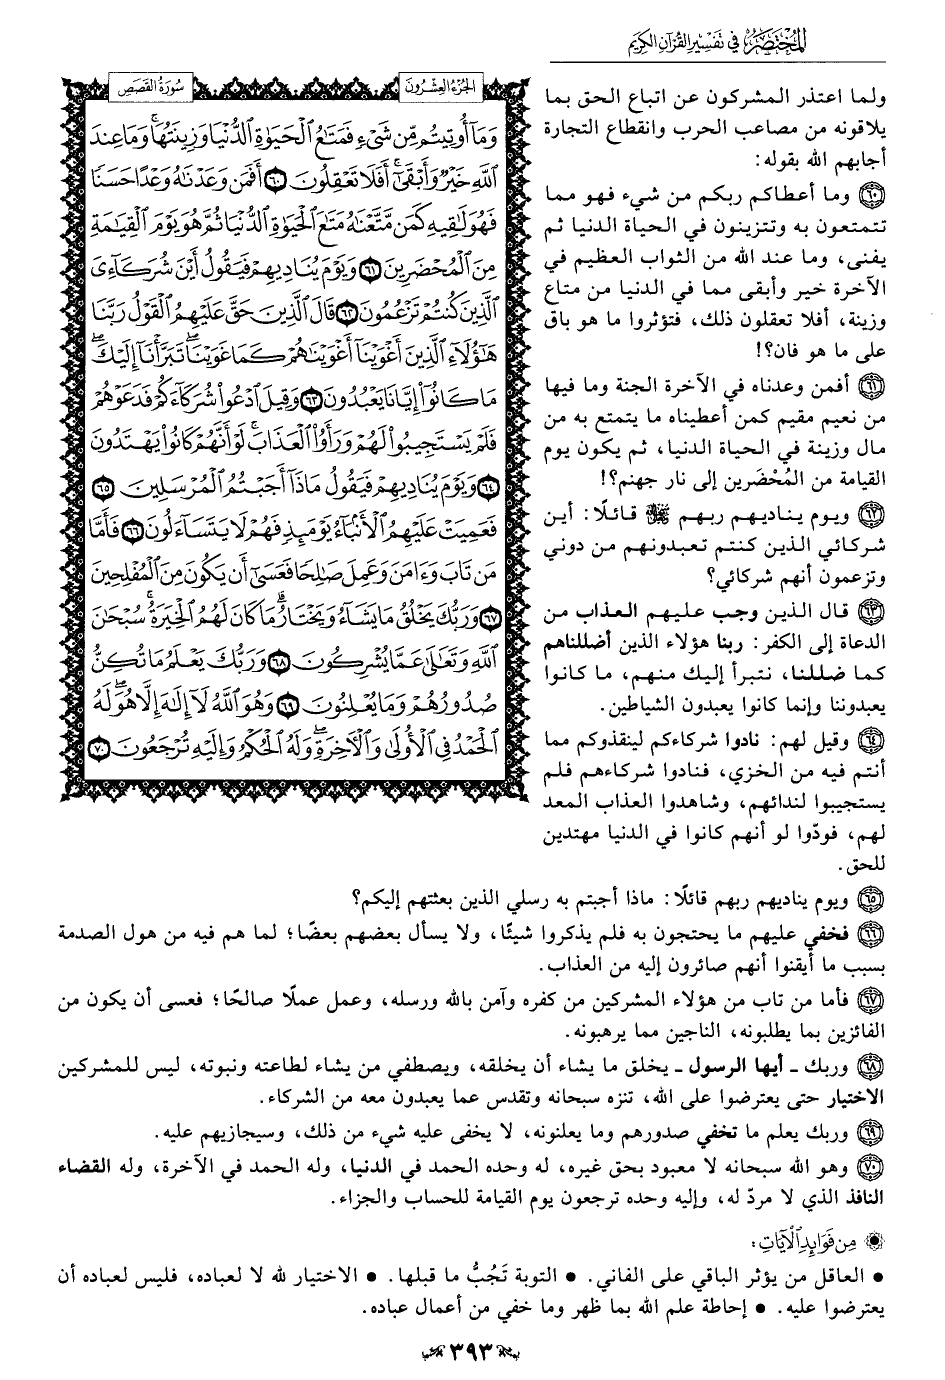 المختصر في تفسير القرآن الكريم
الجزء العشرون
سورة القصص
وَمَآ أُوتِيتُم مِّن شَىْءٍ فَمَتَٰعُ ٱلْحَيَوٰةِ ٱلدُّنْيَا وَزِينَتُهَا ۚ وَمَا عِندَ
ٱللَّهِ خَيْرٌ وَأَبْقَىٰٓ ۚ أَفَلَا تَعْقِلُونَ ٦٠ أَفَمَن وَعَدْنَٰهُ وَعْدًا حَسَنًا
فَهُوَ لَٰقِيهِ كَمَن مَّتَّعْنَٰهُ مَتَٰعَ ٱلْحَيَوٰةِ ٱلدُّنْيَا ثُمَّ هُوَ يَوْمَ ٱلْقِيَٰمَةِ
مِنَ ٱلْمُحْضَرِينَ ٦١ وَيَوْمَ يُنَادِيهِمْ فَيَقُولُ أَيْنَ شُرَكَآءِىَ
ٱلَّذِينَ كُنتُمْ تَزْعُمُونَ ٦٢ قَالَ ٱلَّذِينَ حَقَّ عَلَيْهِمُ ٱلْقَوْلُ رَبَّنَا
هَٰٓؤُلَآءِ ٱلَّذِينَ أَغْوَيْنَآ أَغْوَيْنَٰهُمْ كَمَا غَوَيْنَا ۖ تَبَرَّأْنَآ إِلَيْكَ ۖ
مَا كَانُوٓا۟ إِيَّانَا يَعْبُدُونَ ٦٣ وَقِيلَ ٱدْعُوا۟ شُرَكَآءَكُمْ فَدَعَوْهُمْ
فَلَمْ يَسْتَجِيبُوا۟ لَهُمْ وَرَأَوُا۟ ٱلْعَذَابَ ۚ لَوْ أَنَّهُمْ كَانُوا۟ يَهْتَدُونَ
٦٤ وَيَوْمَ يُنَادِيهِمْ فَيَقُولُ مَاذَآ أَجَبْتُمُ ٱلْمُرْسَلِينَ ٦٥
فَعَمِيَتْ عَلَيْهِمُ ٱلْأَنۢبَآءُ يَوْمَئِذٍ فَهُمْ لَا يَتَسَآءَلُونَ ٦٦ فَأَمَّا
مَن تَابَ وَءَامَنَ وَعَمِلَ صَٰلِحًا فَعَسَىٰٓ أَن يَكُونَ مِنَ ٱلْمُفْلِحِينَ
٦٧ وَرَبُّكَ يَخْلُقُ مَا يَشَآءُ وَيَخْتَارُ ۗ مَا كَانَ لَهُمُ ٱلْخِيَرَةُ ۚ سُبْحَٰنَ
ٱللَّهِ وَتَعَٰلَىٰ عَمَّا يُشْرِكُونَ ٦٨ وَرَبُّكَ يَعْلَمُ مَا تُكِنُّ
صُدُورُهُمْ وَمَا يُعْلِنُونَ ٦٩ وَهُوَ ٱللَّهُ لَآ إِلَٰهَ إِلَّا هُوَ ۖ لَهُ
ٱلْحَمْدُ فِى ٱلْأُولَىٰ وَٱلْءَاخِرَةِ ۖ وَلَهُ ٱلْحُكْمُ وَإِلَيْهِ تُرْجَعُونَ ٧٠
ولما اعتذر المشركون عن اتباع الحق بما
يلاقونه من مصاعب الحرب وانقطاع التجارة
أجابهم الله بقوله:
٦٠ وما أعطاكم ربكم من شيء فهو مما
تتمتعون به وتتزينون في الحياة الدنيا ثم
يفنى، وما عند الله من الثواب العظيم في
الآخرة خير وأبقى مما في الدنيا من متاع
وزينة، أفلا تعقلون ذلك، فتؤثروا ما هو باق
على ما هو فان؟!
٦١ أفمن وعدناه في الآخرة الجنة وما فيها
من نعيم مقيم كمن أعطيناه ما يتمتع به من
مال وزينة في الحياة الدنيا، ثم يكون يوم
القيامة من المُحْضَرين إلى نار جهنم؟!
٦٢ ويوم يناديهم ربهم ﷻ قائلًا: أين
شركائي الذين كنتم تعبدونهم من دوني
وتزعمون أنهم شركائي؟
٦٣ قال الذين وجب عليهم العذاب من
الدعاة إلى الكفر: ربنا هؤلاء الذين أضللناهم
كما ضللنا، نتبرأ إليك منهم، ما كانوا
يعبدوننا وإنما كانوا يعبدون الشياطين.
٦٤ وقيل لهم: نادوا شركاءكم لينقذوكم مما
أنتم فيه من الخزي، فنادوا شركاءهم فلم
يستجيبوا لندائهم، وشاهدوا العذاب المعد
لهم، فودّوا لو أنهم كانوا في الدنيا مهتدين
للحق.
٦٥ ويوم يناديهم ربهم قائلًا: ماذا أجبتم به رسلي الذين بعثتهم إليكم؟
٦٦ فخفي عليهم ما يحتجون به فلم يذكروا شيئًا، ولا يسأل بعضهم بعضًا؛ لما هم فيه من هول الصدمة
بسبب ما أيقنوا أنهم صائرون إليه من العذاب.
٦٧ فأما من تاب من هؤلاء المشركين من كفره وآمن بالله ورسله، وعمل عملًا صالحًا؛ فعسى أن يكون من
الفائزين بما يطلبونه، الناجين مما يرهبونه.
٦٨ وربك ـ أيها الرسول ـ يخلق ما يشاء أن يخلقه، ويصطفي من يشاء لطاعته ونبوته، ليس للمشركين
الاختيار حتى يعترضوا على الله، تنزه سبحانه وتقدس عما يعبدون معه من الشركاء.
٦٩ وربك يعلم ما تخفي صدورهم وما يعلنونه، لا يخفى عليه شيء من ذلك، وسيجازيهم عليه.
٧٠ وهو الله سبحانه لا معبود بحق غيره، له وحده الحمد في الدنيا، وله الحمد في الآخرة، وله القضاء
النافذ الذي لا مردّ له، وإليه وحده ترجعون يوم القيامة للحساب والجزاء.
من فوائد الآيات:
• العاقل من يؤثر الباقي على الفاني. • التوبة تَجُبُّ ما قبلها. • الاختيار لله لا لعباده، فليس لعباده أن
يعترضوا عليه. • إحاطة علم الله بما ظهر وما خفي من أعمال عباده.
٣٩٣